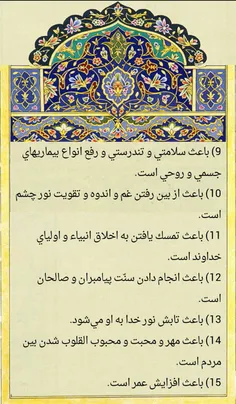 9) باعث سلامتي و تندرستي و رفع انواع بيماريهاي
جسمي و روحي است.
10) باعث از بين رفتن غم و اندوه و تقويت نور چشم
است.
11) باعث تمسك يافتن به اخلاق انبياء و اولياي
خداوند است.
12) باعث انجام دادن سنّت پيامبران و صالحان
است.
13) باعث تابش نور خدا به او مي‌شود.
14) باعث مهر و محبت و محبوب القلوب شدن بين
مردم است.
15) باعث افزايش عمر است.